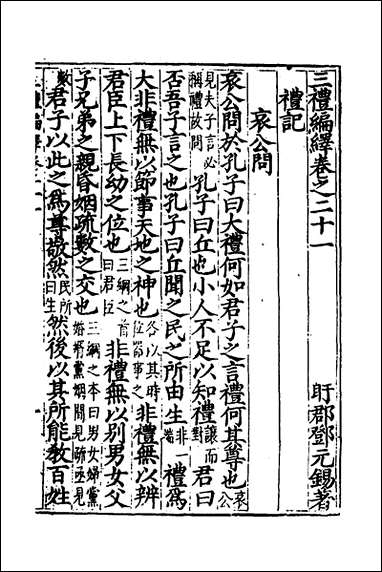 三禮編繹卷之二十一
盱郡鄧元錫著
禮記
哀公問
哀公問於孔子曰大禮何如君子之言禮何其尊也哀公
見夫子言必稱禮故問孔子曰丘也小人不足以知禮讓而對君曰
否吾子言之也孔子曰丘聞之民之所由生非一端禮為
大非禮無以節事天地之神也各以其時位節事之非禮無以辨
君臣上下長幼之位也三綱之首曰君臣非禮無以別男女父
子兄弟之親昏姻疏數之交也三綱之本曰男女婦黨婚姻黨間見疏亟見
數君子以此之為尊敬然民所曰生然後以其所能教百姓